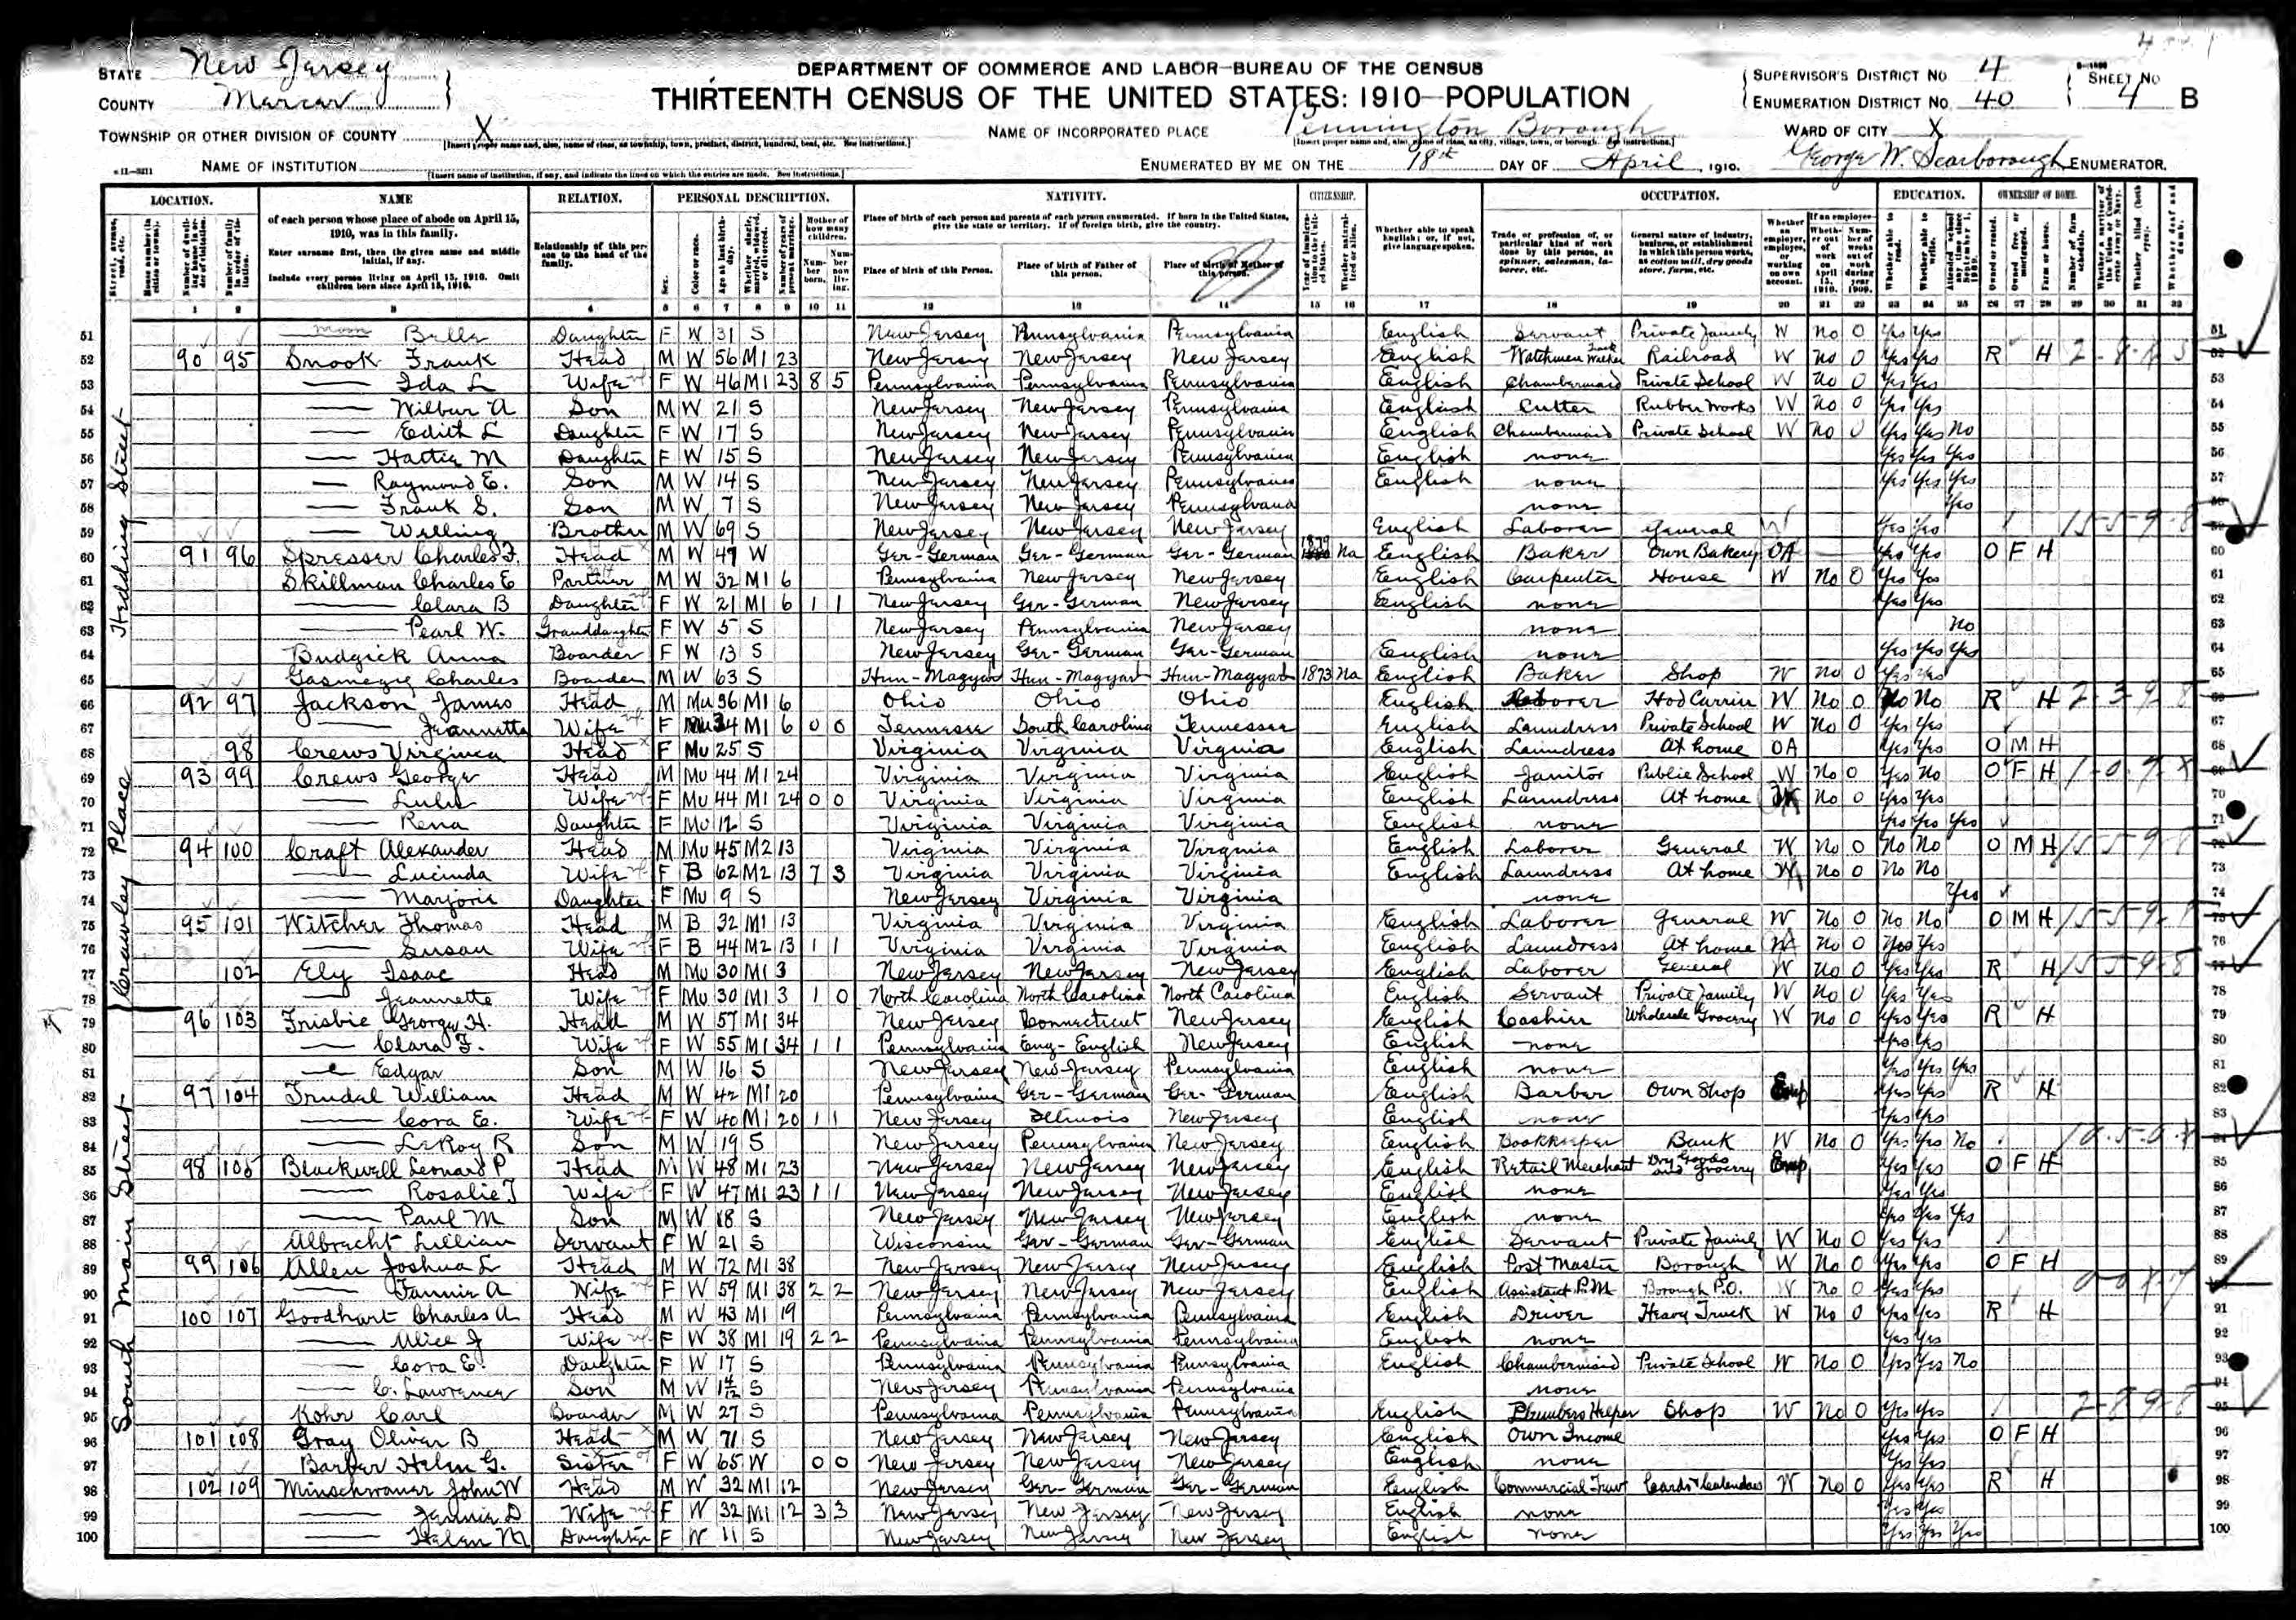 STATE New Jersey
COUNTY Mercer
DEPARTMENT OF COMMERCE AND LABOR-BUREAU OF THE CENSUS
THIRTEENTH CENSUS OF THE UNITED STATES: 1910-POPULATION
SUPERVISOR'S DISTRICT NO 4
ENUMERATION DISTRICT NO. 40
SHEET NO 4 B
TOWNSHIP OR OTHER DIVISION OF COUNTY X
NAME OF INCORPORATED PLACE Pennington Borough
WARD OF CITY X
NAME OF INSTITUTION
ENUMERATED BY ME ON THE 18th DAY OF April, 1910. George W. Scarborough ENUMERATOR.
LOCATION. NAME RELATION. PERSONAL DESCRIPTION. NATIVITY. CITIZENSHIP. OCCUPATION. EDUCATION. OWNERSHIP OF HOME.
of each person whose place of abode on April 15, 1910, was in this family.
Enter surname first, then the given name and middle initial, if any.
Include every person living on April 15, 1910. Omit children born since April 15, 1910.
Relationship of this person to the head of the family.
Place of birth of each person and parents of each person enumerated. If born in the United States, give the state or territory. If of foreign birth, give the country.
Place of birth of this Person. Place of birth of Father of this person. Place of birth of Mother of this person.
Whether able to speak English; or, if not, give language spoken.
Trade or profession of, or particular kind of work done by this person, as spinner, salesman, laborer, etc.
General nature of industry, business, or establishment in which this person works, as cotton mill, dry goods store, farm, etc.
Hedding Street
51 Bella Daughter F W 31 S New Jersey Pennsylvania Pennsylvania English Servant Private Family W No 0 Yes Yes 51
52 90 95 Snook Frank Head M W 56 M1 23 New Jersey New Jersey New Jersey English Watchman Railroad W No 0 Yes Yes R H 52
53 Ida L Wife F W 46 M1 23 8 5 Pennsylvania Pennsylvania Pennsylvania English Chambermaid Private School W No 0 Yes Yes 53
54 Wilbur A Son M W 21 S New Jersey New Jersey Pennsylvania English Cutter Rubber Works W No 0 Yes Yes 54
55 Edith L Daughter F W 17 S New Jersey New Jersey Pennsylvania English Chambermaid Private School W No 0 Yes Yes No 55
56 Hattie M Daughter F W 15 S New Jersey New Jersey Pennsylvania English none Yes Yes Yes 56
57 Raymond E. Son M W 14 S New Jersey New Jersey Pennsylvania English none Yes Yes Yes 57
58 Frank S. Son M W 7 S New Jersey New Jersey Pennsylvania none Yes 58
59 Welling Brother M W 69 S New Jersey New Jersey New Jersey English Laborer General W Yes Yes 59
60 91 96 Spresser Charles F. Head M W 47 W Ger-German Ger-German Ger-German 1879 Na English Baker Own Bakery OA Yes Yes O F H 60
61 Skillman Charles E Partner M W 32 M1 6 Pennsylvania New Jersey New Jersey English Carpenter House W No 0 Yes Yes 61
62 Clara B Daughter F W 21 M1 6 1 1 New Jersey Ger-German New Jersey English none Yes Yes 62
63 Pearl W. Granddaughter F W 5 S New Jersey Pennsylvania New Jersey none No 63
64 Budgick Anna Boarder F W 13 S New Jersey Ger-German Ger-German English none Yes Yes Yes 64
65 Charles Boarder M W 63 S Hun-Magyar Hun-Magyar Hun-Magyar 1873 Na English Baker Shop W No 0 Yes Yes 65
Crawley Place
66 92 97 Jackson James Head M Mu 36 M1 6 Ohio Ohio Ohio English Laborer Hod Carrier W No 0 No No R H 66
67 Jeannette Wife F Mu 34 M1 6 0 0 Tennessee South Carolina Tennessee English Laundress Private School W No 0 Yes Yes 67
68 98 Crews Virginia Head F Mu 25 S Virginia Virginia Virginia English Laundress At home OA Yes Yes O M H 68
69 93 99 Crews George Head M Mu 44 M1 24 Virginia Virginia Virginia English Janitor Public School W No 0 Yes No O F H 69
70 Lulu Wife F Mu 44 M1 24 0 0 Virginia Virginia Virginia English Laundress At home No 0 Yes Yes 70
71 Rena Daughter F Mu 12 S Virginia Virginia Virginia English none Yes Yes Yes 71
72 94 100 Craft Alexander Head M Mu 45 M2 13 Virginia Virginia Virginia English Laborer General W No 0 No No O M H 72
73 Lucinda Wife F B 62 M2 13 7 3 Virginia Virginia Virginia English Laundress At home No 0 No No 73
74 Marjorie Daughter F Mu 9 S New Jersey Virginia Virginia none Yes 74
75 95 101 Witcher Thomas Head M B 32 M1 13 Virginia Virginia Virginia English Laborer General W No 0 No No O M H 75
76 Susan Wife F B 44 M2 13 1 1 Virginia Virginia Virginia English Laundress At home No 0 Yes Yes 76
77 102 Ely Isaac Head M Mu 30 M1 3 New Jersey New Jersey New Jersey English Laborer General W No 0 Yes Yes R H 77
78 Jeannette Wife F Mu 30 M1 3 1 0 North Carolina North Carolina North Carolina English Servant Private Family W No 0 Yes Yes 78
South Main Street
79 96 103 Frisbie George H. Head M W 57 M1 34 New Jersey Connecticut New Jersey English Cashier Wholesale Grocery W No 0 Yes Yes R H 79
80 Clara F. Wife F W 55 M1 34 1 1 Pennsylvania Eng-English New Jersey English none Yes Yes 80
81 Edgar Son M W 16 S New Jersey New Jersey Pennsylvania English none Yes Yes Yes 81
82 97 104 Trudel William Head M W 42 M1 20 Pennsylvania Ger-German Ger-German English Barber Own Shop Emp Yes Yes R H 82
83 Cora E. Wife F W 40 M1 20 1 1 New Jersey Illinois New Jersey English none Yes Yes 83
84 LeRoy R Son M W 19 S New Jersey Pennsylvania New Jersey English Bookkeeper Bank W No 0 Yes Yes No 84
85 98 105 Blackwell Leonard P Head M W 48 M1 23 New Jersey New Jersey New Jersey English Retail Merchant Dry Goods and Grocery Emp Yes Yes O F H 85
86 Rosalie T Wife F W 47 M1 23 1 1 New Jersey New Jersey New Jersey English none Yes Yes 86
87 Paul M Son M W 18 S New Jersey New Jersey New Jersey English none Yes Yes Yes 87
88 Albrecht Lillian Servant F W 21 S Wisconsin Ger-German Ger-German English Servant Private Family W No 0 Yes Yes 88
89 99 106 Allen Joshua L Head M W 72 M1 38 New Jersey New Jersey New Jersey English Post Master Borough W No 0 Yes Yes O F H 89
90 Fannie A Wife F W 59 M1 38 2 2 New Jersey New Jersey New Jersey English Assistant P.M. Borough P.O. W No 0 Yes Yes 90
91 100 107 Goodhart Charles A Head M W 43 M1 19 Pennsylvania Pennsylvania Pennsylvania English Driver Heavy Truck W No 0 Yes Yes R H 91
92 Alice J Wife F W 38 M1 19 2 2 Pennsylvania Pennsylvania Pennsylvania English none Yes Yes 92
93 Cora E. Daughter F W 17 S Pennsylvania Pennsylvania Pennsylvania English Chambermaid Private School W No 0 Yes Yes No 93
94 C. Lawrence Son M W S New Jersey Pennsylvania Pennsylvania none 94
95 Kohr Carl Boarder M W 27 S Pennsylvania Pennsylvania Pennsylvania English Plumbers Helper Shop W No 0 Yes Yes 95
96 101 108 Gray Oliver B Head M W 71 S New Jersey New Jersey New Jersey English Own Income Yes Yes O F H 96
97 Barber Helen G. Sister F W 65 W 0 0 New Jersey New Jersey New Jersey English none Yes Yes 97
98 102 109 Minschwaner John W Head M W 32 M1 12 New Jersey Ger-German Ger-German English Commercial Trav Cards & Calendars W No 0 Yes Yes R H 98
99 Jennie D Wife F W 32 M1 12 3 3 New Jersey New Jersey New Jersey English none Yes Yes 99
100 Helen M Daughter F W 11 S New Jersey New Jersey New Jersey English none Yes Yes Yes 100